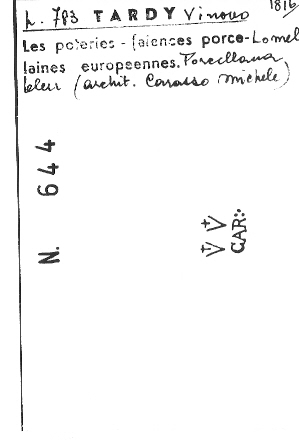 p. 783 TARDY Vinovo 1816
Les poteries - faiences porce-Lomel
laines europeennes. Porcellana
bleu (archit. Carasso Michele)
N. 644
V V
CAR: